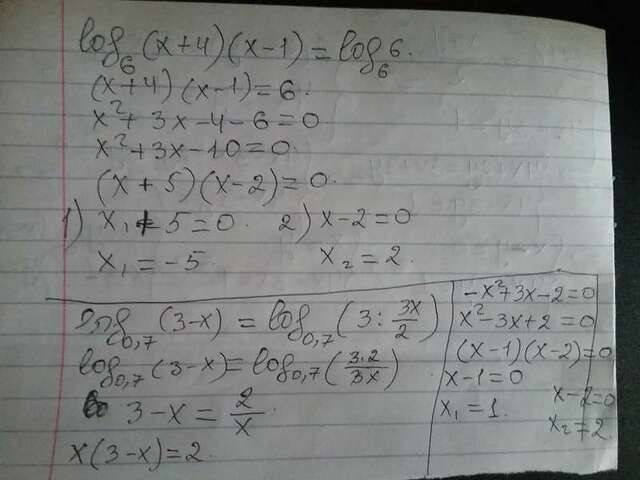 log₆ (x+4)(x-1) = log₆ 6.
(x+4)(x-1) = 6.
x² + 3x - 4 - 6 = 0
x² + 3x - 10 = 0.
(x + 5)(x - 2) = 0.
1) x₁ + 5 = 0. 2) x - 2 = 0
x₁ = -5 x₂ = 2.
log₀,₇ (3-x) = log₀,₇ (3 : 3x/2)
log₀,₇ (3-x) = log₀,₇ (3·2/3x)
3 - x = 2/x.
x(3-x) = 2.
-x² + 3x - 2 = 0
x² - 3x + 2 = 0.
(x-1)(x-2) = 0
x - 1 = 0 x - 2 = 0
x₁ = 1. x₂ = 2.